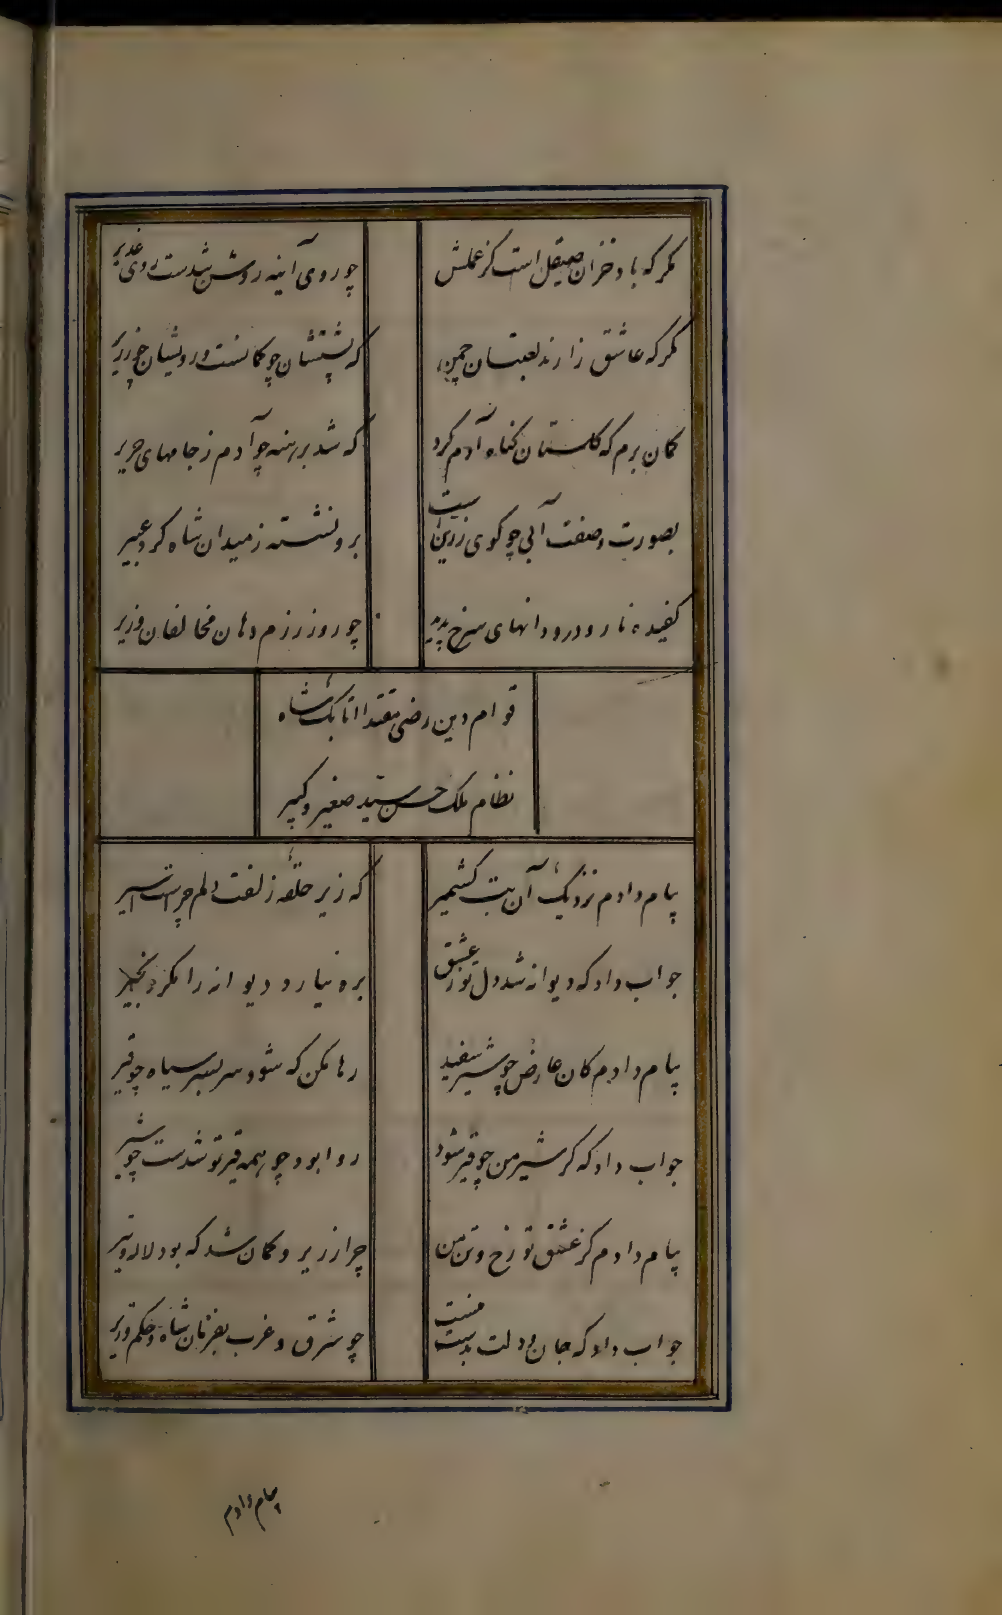 مکر که باد خزان صیقل است کز عملش چو روی آینه روشن شدست روی غدیر
مکر که عاشق زارند لعبتان چمن که پشتشان چو کمانست و رویشان چو زریر
کمان برم که کلستان کناه آدم کرد که شد برهنه چو آدم ز جامهای حریر
بصورت و صفت آبی چو کوی زرین است برو نشسته ز میدان شاه کرد عبیر
کفیده نار و درو دانهای سرخ پدید چو روز رزم دهان مخالفان وزیر
قوام دین رضی مقتدا اتابک شاه
نظام ملک حسن سید صغیر و کبیر
پیام دادم نزدیک آن بت کشمیر که زیر حلقه زلفت دلم چراست اسیر
جواب داد که دیوانه شد دل تو ز عشق بره نیارد دیوانه را مکر زنجیر
پیام دادم کان عارض چو شیر سفید رها مکن که شود سربسر سیاه چو قیر
جواب داد که کر شیر من چو قیر شود روا بود چو همه قیر تو شدست چو شیر
پیام دادم کز عشق تو رخ و تن من چرا زریر و کمان شد که بود لاله و تیر
جواب داد که جان و دلت بدست منست چو شرق و غرب بفرمان شاه و حکم وزیر
پیام دادم